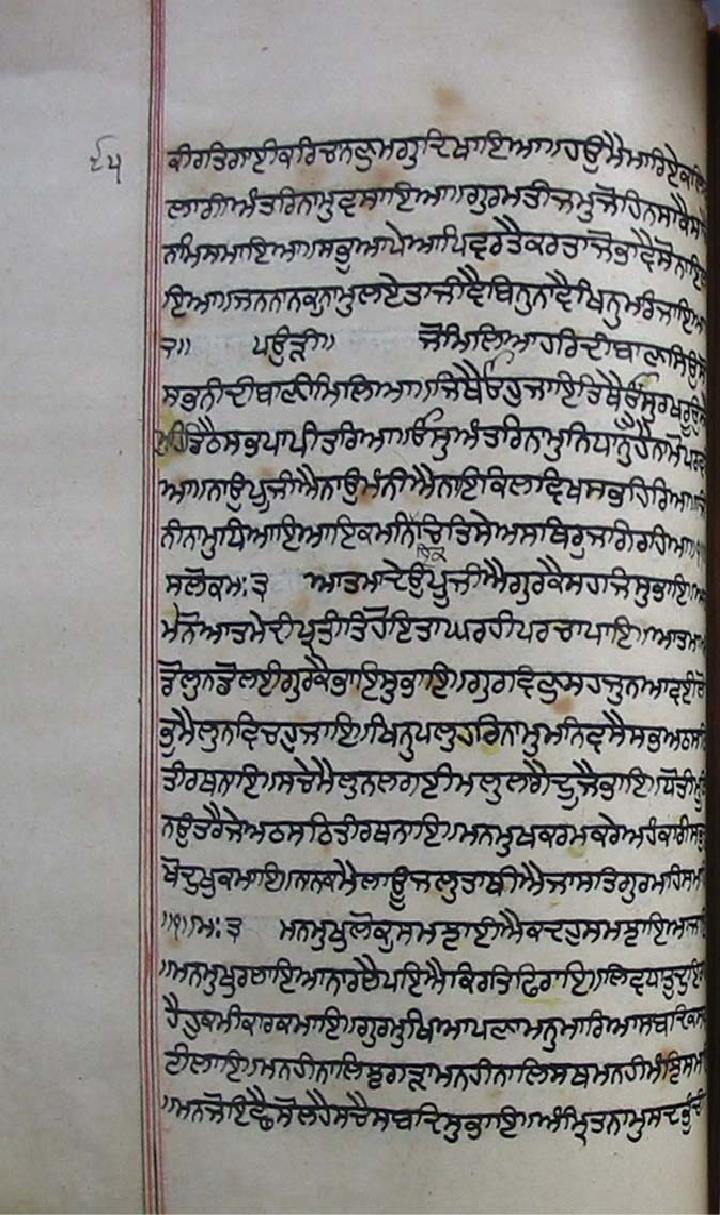 ੬੫
ਕੀਰਤਿਗਾਈਕਰਿਚਾਨਣੁਮਗੁਦਿਖਾਇਆ॥ਹਉਮੈਮਾਰਿਏਕਲਿਵ
ਲਾਗੀਅੰਤਰਿਨਾਮੁਵਸਾਇਆ॥ਗੁਰਮਤੀਜਮੁਜੋਹਿਨਸਾਕੈਸਾਚੈ
ਨਾਮਿਸਮਾਇਆ॥ਸਭੁਆਪੇਆਪਿਵਰਤੈਕਰਤਾਜੋਭਾਵੈਸੋਨਾਇ
ਇਆ॥ਜਨਨਾਨਕੁਨਾਮੁਲਏਤਾਜੀਵੈਬਿਨੁਨਾਵੈਖਿਨੁਮਰਿਜਾਇਆ
੨॥ ਪਉੜੀ॥ ਜੋਮਿਲਿਆਹਰਿਦੀਬਾਣਸਿਉਸੋ
ਸਭਨੀਦੀਬਾਣੀਮਿਲਿਆ॥ਜਿਥੈਓਹੁਜਾਇਤਿਥੈਓਸੁਰਖਰੂਉਸ
ਮੁਹਿਡਿਠੈਸਭਪਾਪੀਤਰਿਆ॥ਓਸੁਅੰਤਰਿਨਾਮੁਨਿਧਾਨੁਹੈਨਾਮੋਪਰਵ
ਆ॥ਨਾਉਪੂਜੀਐਨਾਉਮੰਨੀਐਨਾਇਕਿਲਵਿਖਸਭਹਿਰਿਆ॥ਜਿ
ਨੀਨਾਮੁਧਿਆਇਆਇਕਮਨਿਚਿਤਿਸੇਅਸਥਿਰੁਜਗਿਰਹਿਆ॥
ਸਲੋਕਮਃ੩ ਆਤਮਾਦੇਉਪੂਜੀਐਗੁਰਕੈਸਹਜਿਸੁਭਾਇ॥
ਮਨੋਆਤਮੇਦੀਪ੍ਰਤੀਤਿਹੋਇਤਾਘਰਹੀਪਰਚਾਪਾਇ॥ਆਤਮਾਅ
ਡੋਲੁਨਡੋਲਈਗੁਰਕੈਭਾਇਸੁਭਾਇ॥ਗੁਰਵਿਣੁਸਹਜੁਨਆਵਈਲੋ
ਭੁਮੈਲੁਨਵਿਚਹੁਜਾਇ॥ਖਿਨੁਪਲੁਹਰਿਨਾਮੁਮਨਿਵਸੈਸਭਅਠਸਠਿ
ਤੀਰਥਨਾਇ॥ਸਚੇਮੈਲੁਨਲਗਈਮਲੁਲਗੈਦੂਜੈਭਾਇ॥ਧੋਤੀਮੂਲਿ
ਨਉਤਰੈਜੇਅਠਸਠਿਤੀਰਥਨਾਇ॥ਮਨਮੁਖਕਰਮਕਰੇਅਹੰਕਾਰੀਸਭੁ
ਖੋਦੁਖੁਕਮਾਇ॥ਨਨਕਮੈਲਾਊਜਲੁਤਾਥੀਐਜਾਸਤਿਗੁਰਮਾਹਿਸਮ
॥੧॥ਮਃ੩ ਮਨਮੁਖੁਲੋਕੁਸਮਝਾਈਐਕਦਹੁਸਮਝਾਇਆਜਾਇ
॥ਮਨਮੁਖੁਰਲਾਇਆਨਾਰਲੈਪਇਐਕਿਰਤਿਫਿਰਾਇ॥ਲਿਵਧਾਤੁਦੁਇਰ
ਹੈਹੁਕਮੀਕਾਰਕਮਾਇ॥ਗੁਰਮੁਖਿਆਪਣਾਮਨੁਮਾਰਿਆਸਬਦਿਕਸ
ਟੀਲਾਇ॥ਮਨਹੀਨਾਲਿਝਗੜਾਮਨਹੀਨਾਲਿਸਥਮਨਹੀਮੰਝਿਸਮ
॥ਮਨਜੋਇਛੈਸੋਲਹੈਸਚੈਸਬਦਿਸੁਭਾਇ॥ਅੰਮ੍ਰਿਤਨਾਮੁਸਦਭੁੰਚੀ